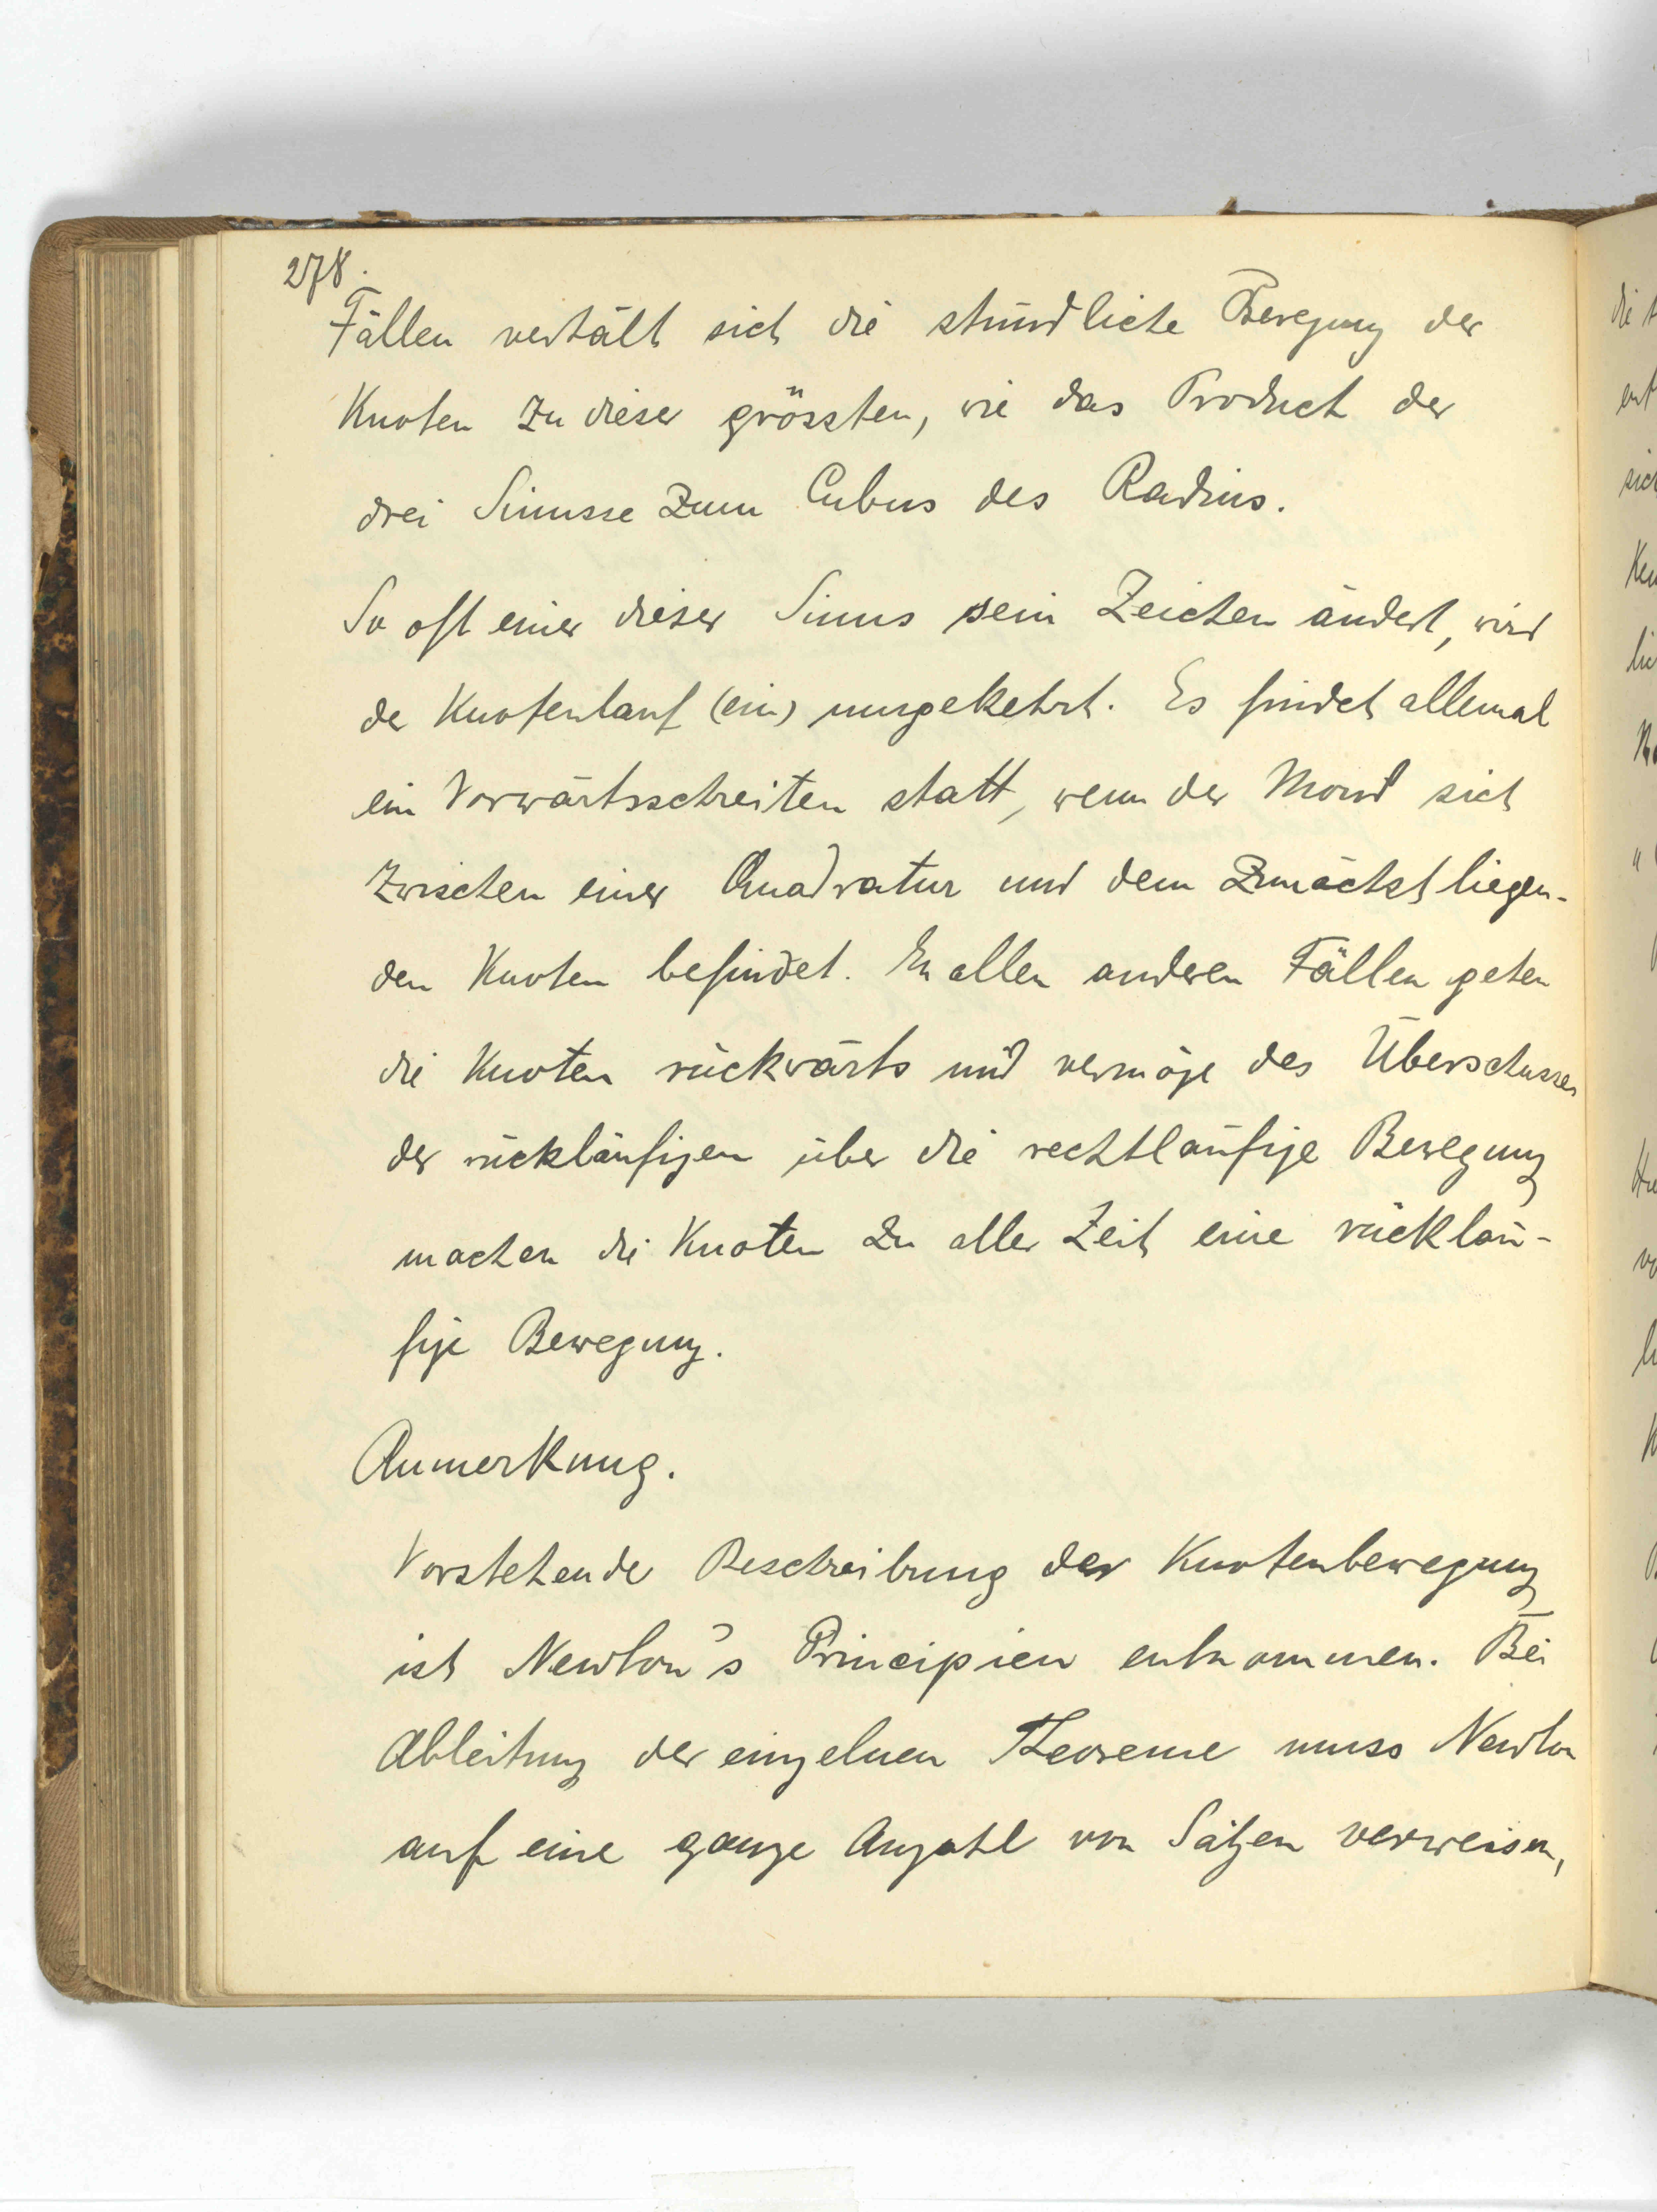 278.
Fällen verhält sich die stündliche Bewegung der
Knoten zu dieser grössten, wie das Product der
drei Sinusse zum Cubus des Radius.
So oft einer dieser Sinus sein Zeichen ändert, wird
der Knotenlauf (ein) umgekehrt. Es findet allemal
ein Vorwärtsschreiten statt, wenn der Mond sich
zwischen einer Quadratur und dem zunächst liegen-
den Knoten befindet. In allen anderen Fällen gehen
die Knoten rückwärts und vermöge des Überschusses
der rückläufigen über die rechtläufige Bewegung
machen die Knoten zu aller Zeit eine rückläu-
fige Bewegung.
Anmerkung.
Vorstehende Beschreibung der Knotenbewegung
ist Newton's Principien entnommen. Bei
Ableitung der einzelnen Theoreme muss Newton
auf eine ganze Anzahl von Sätzen verweisen,